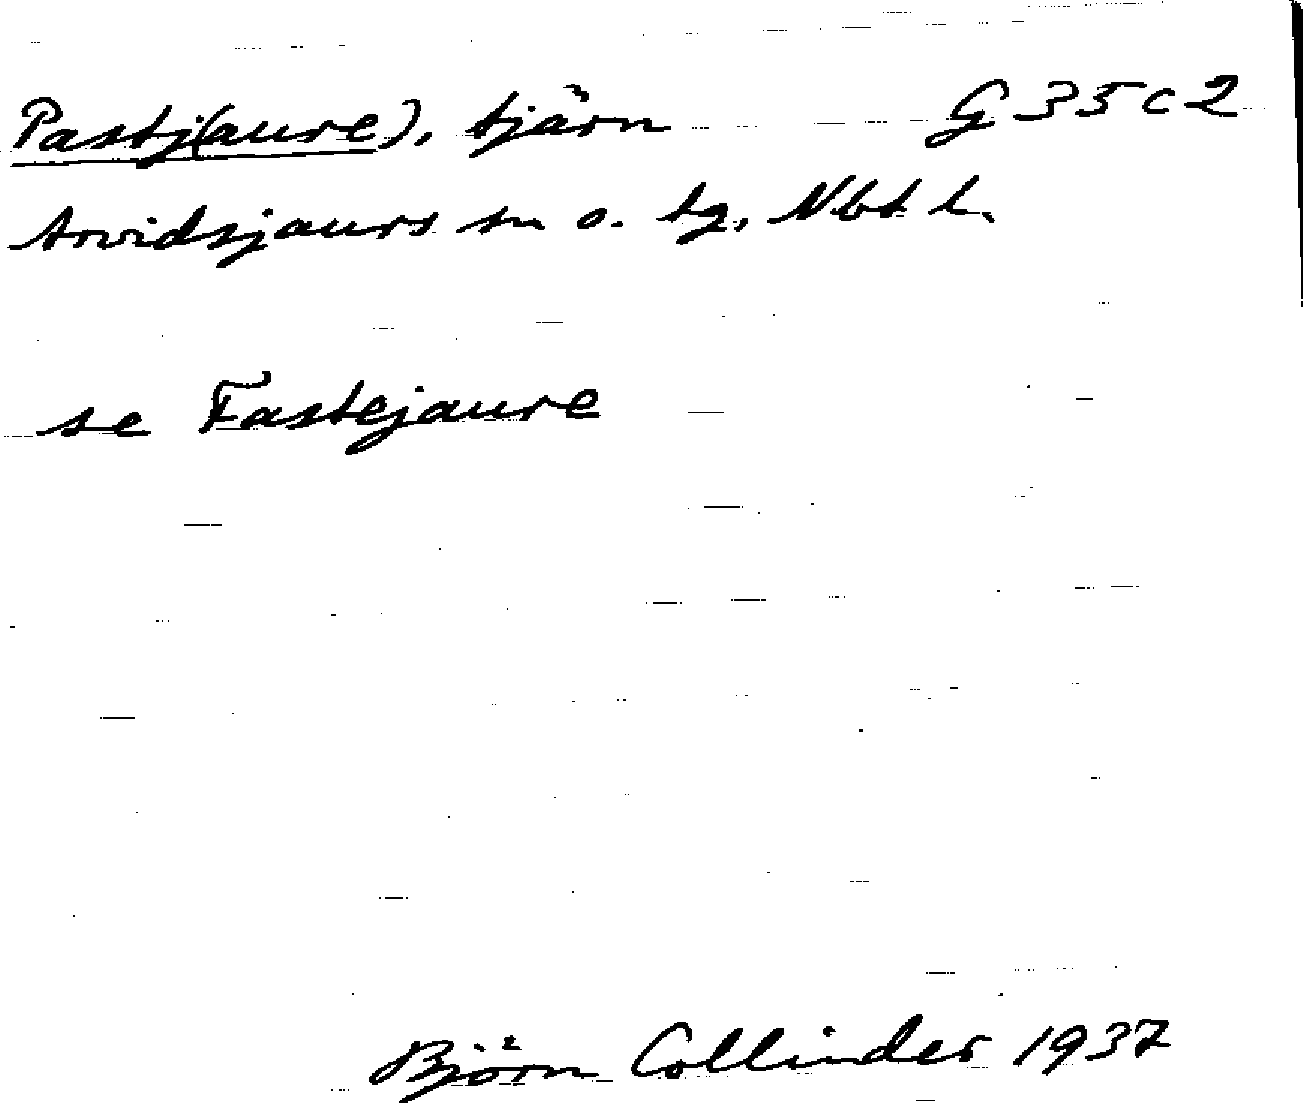 Pastj(aure), tjärn G 35 c 2
Arvidsjaurs sn o. tg, Nbt l.
se Fastejaure
Björn Collinder 1937